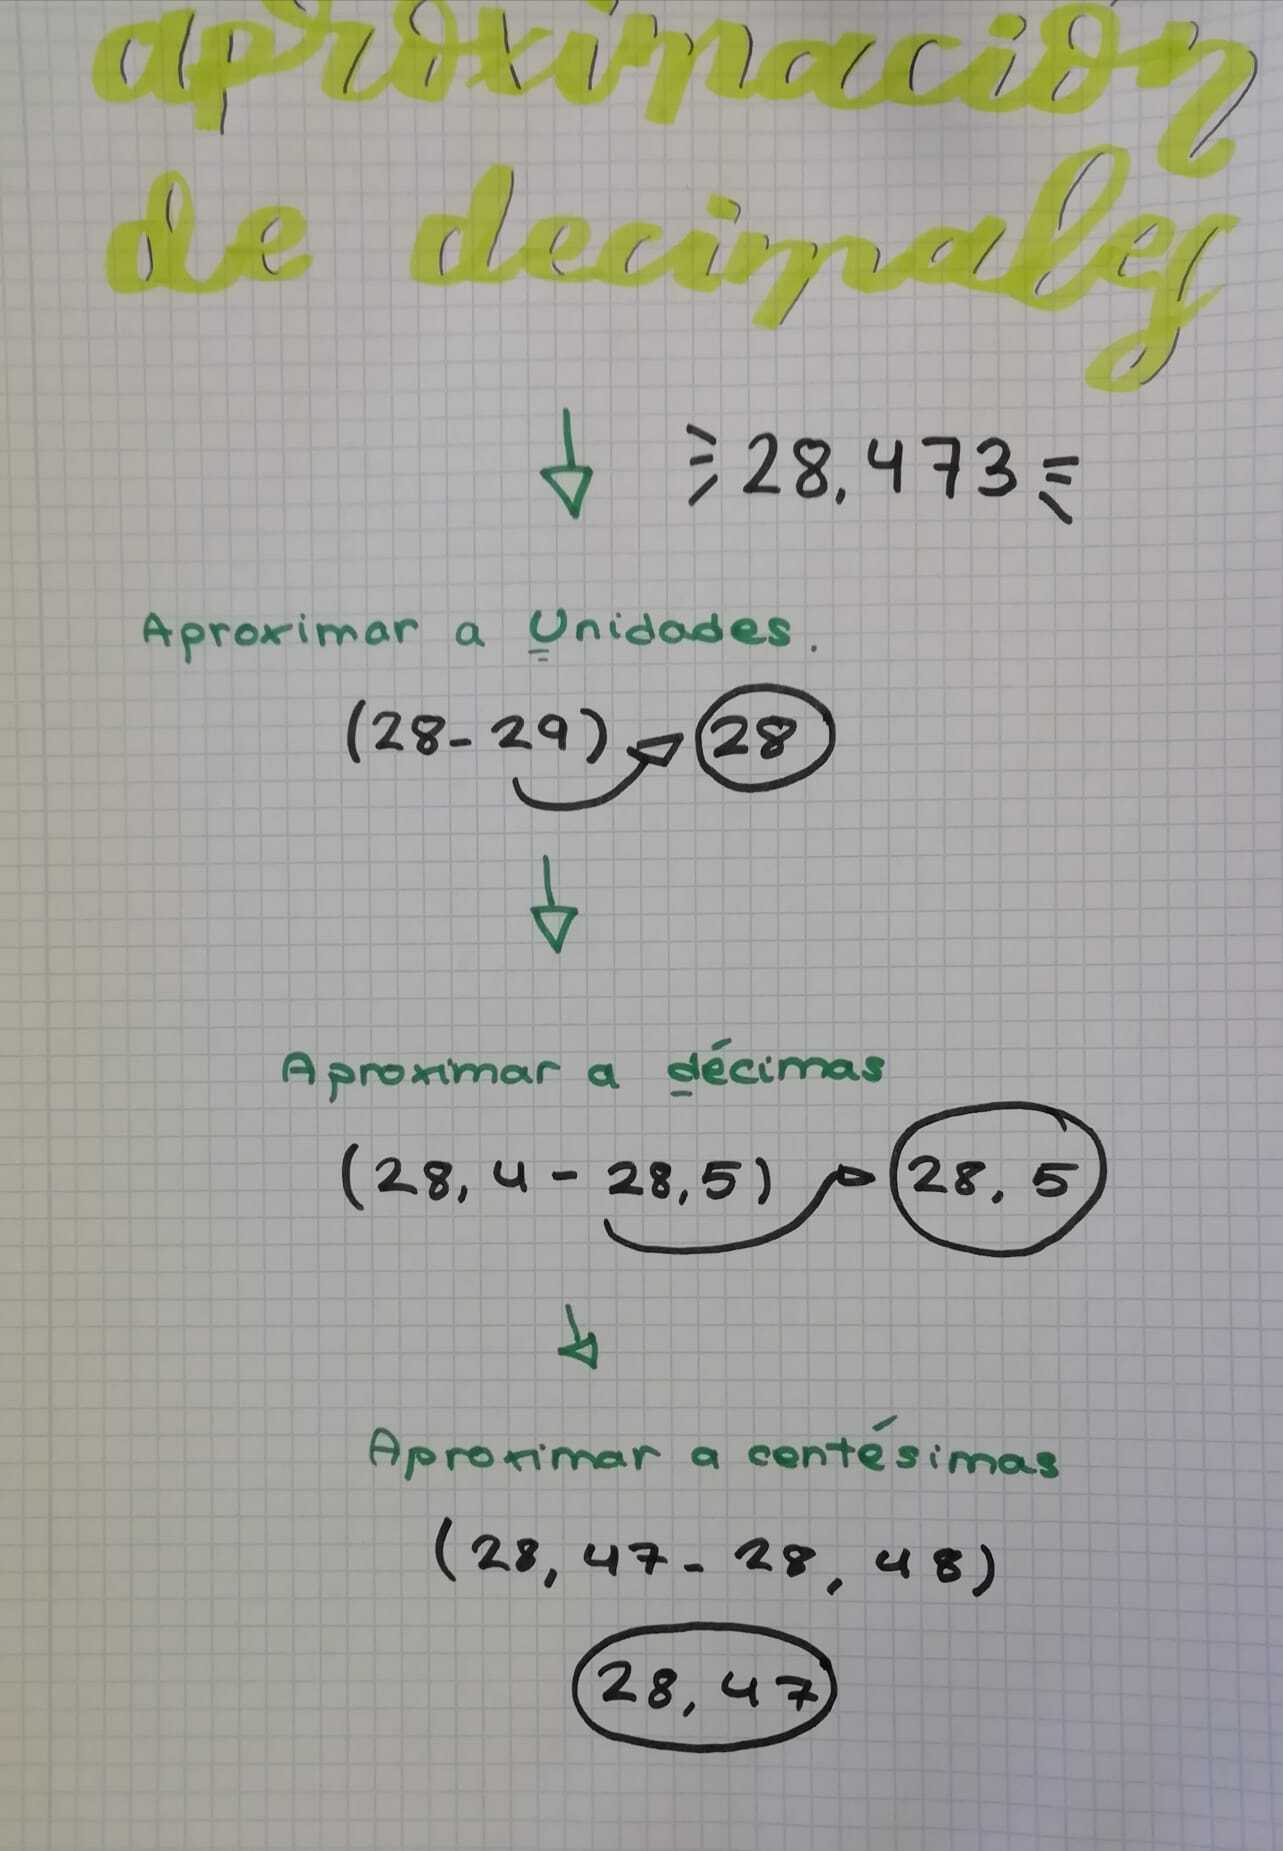 aproximación
de decimales
28,473
Aproximar a Unidades.
(28-29) 28
Aproximar a décimas
(28,4-28,5) 28,5
Aproximar a centésimas
(28,47-28,48)
28,47